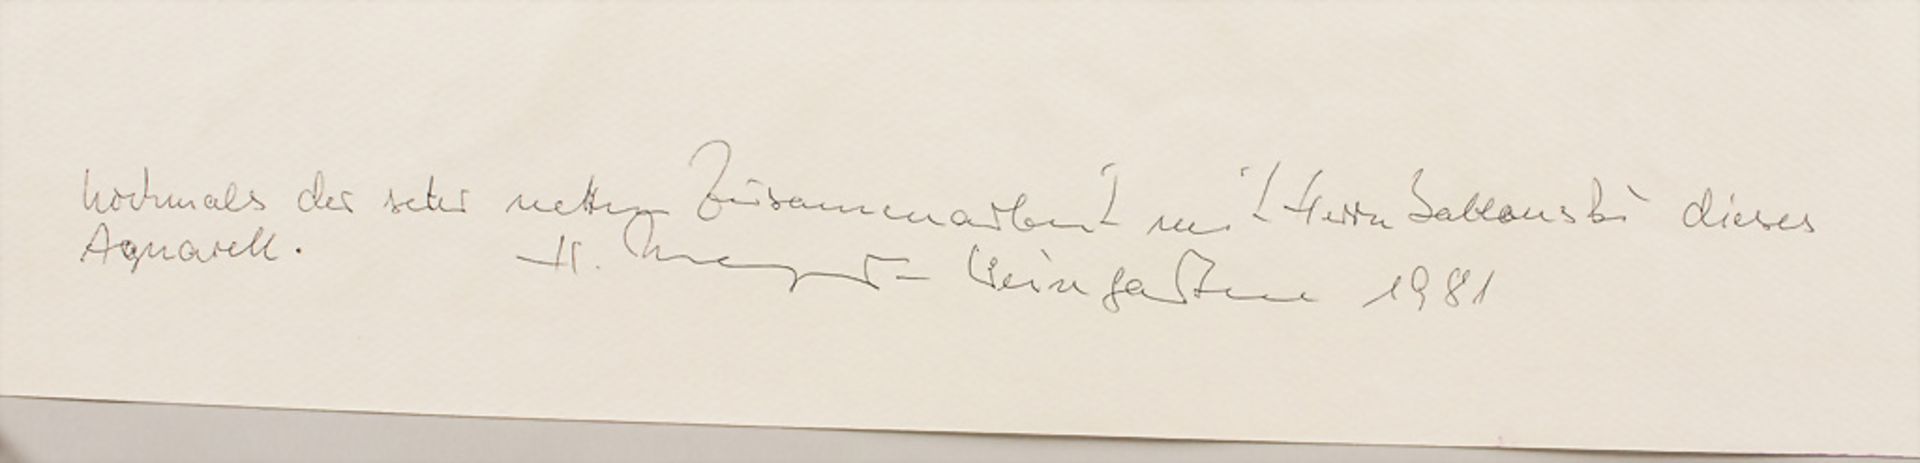 nochmals der sehr netten Zusammenarbeit mit Herrn Sablonski dieses
Aquarell. H. Mayer-Weingarten 1981